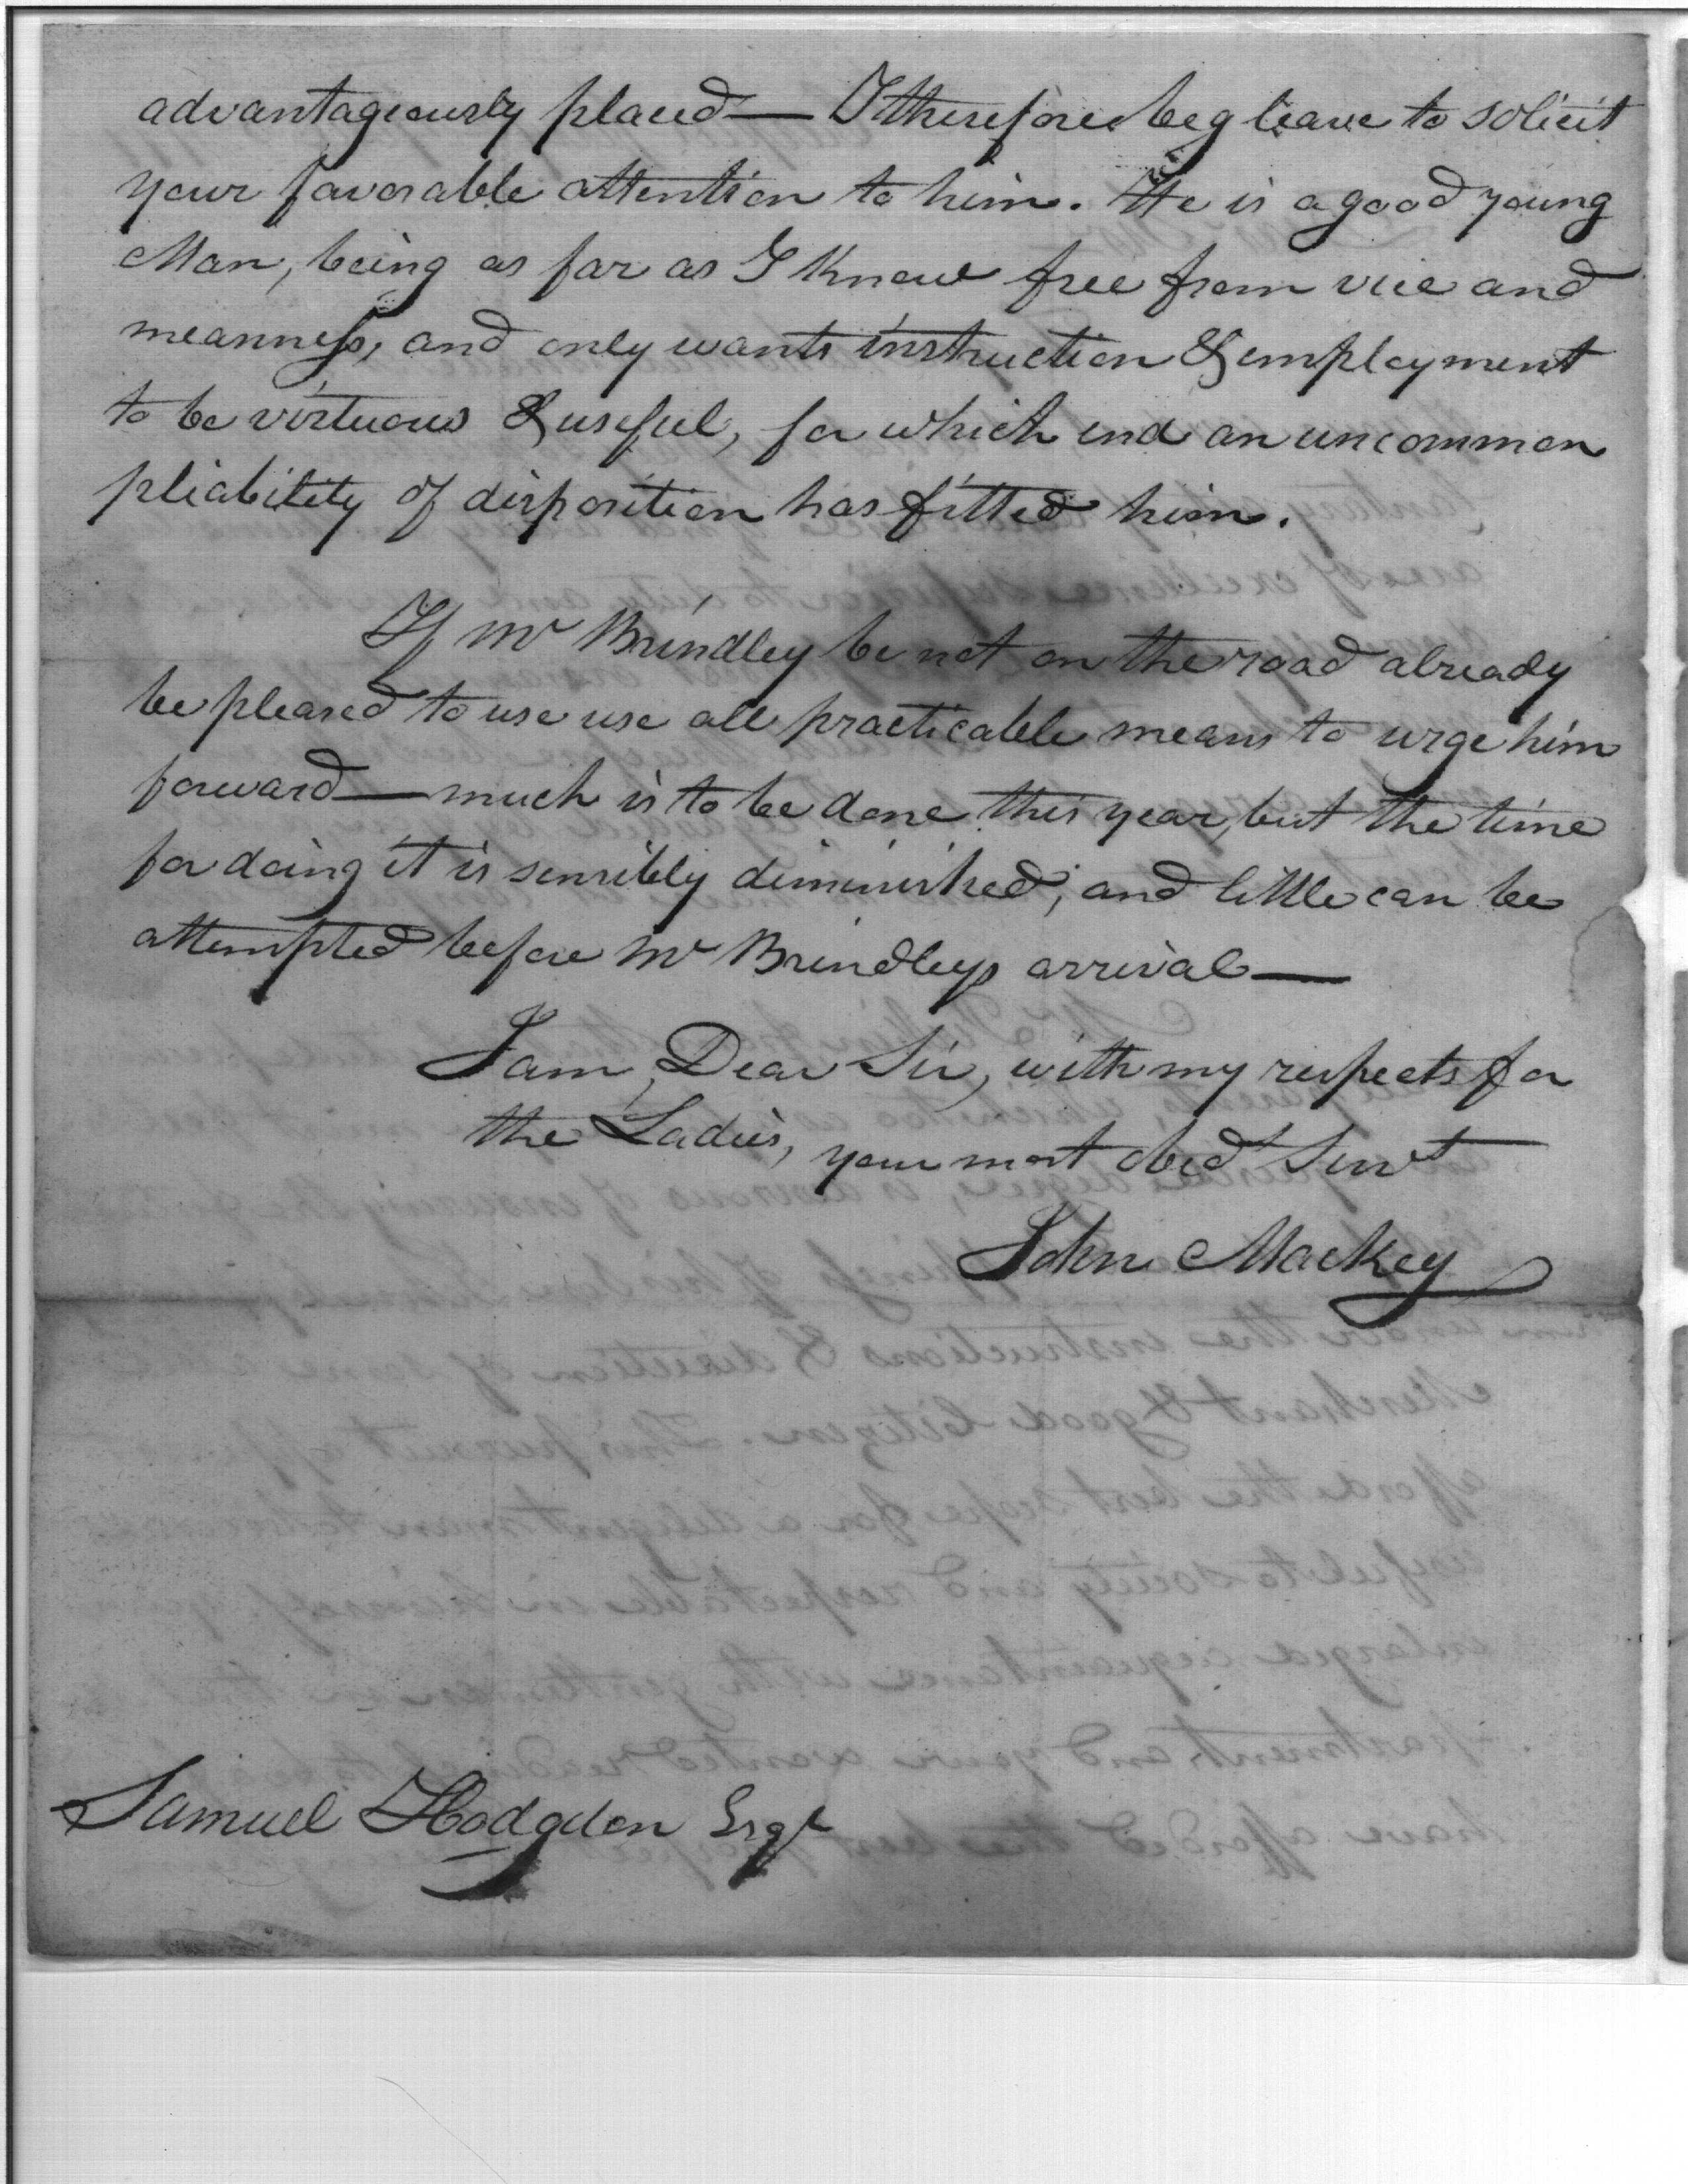 advantageously placed — I therefore beg leave to solicit
your favorable attention to him. He is a good young
Man, being as far as I know free from vice and
meanness, and only wants instruction & employment
to be virtuous & useful, for which end an uncommon
pliability of disposition has fitted him.
If Mr Brindley be not on the road already
be pleased to use use all practicable means to urge him
forward — much is to be done this year, but the time
for doing it is sensibly diminished, and little can be
attempted before Mr Brindleys arrival —
I am, Dear Sir, with my respects for
the Ladies, your most obed Servt
John Mackey
Samuel Hodgdon Esqr